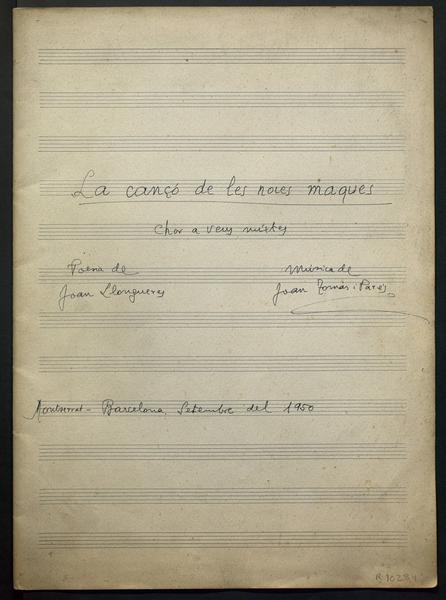 La cançó de les noies maques
Chor a veus mixtes
Poema de
Joan Llongueres
Música de
Joan Tomàs i Parés
Montserrat - Barcelona, Setembre del 1950